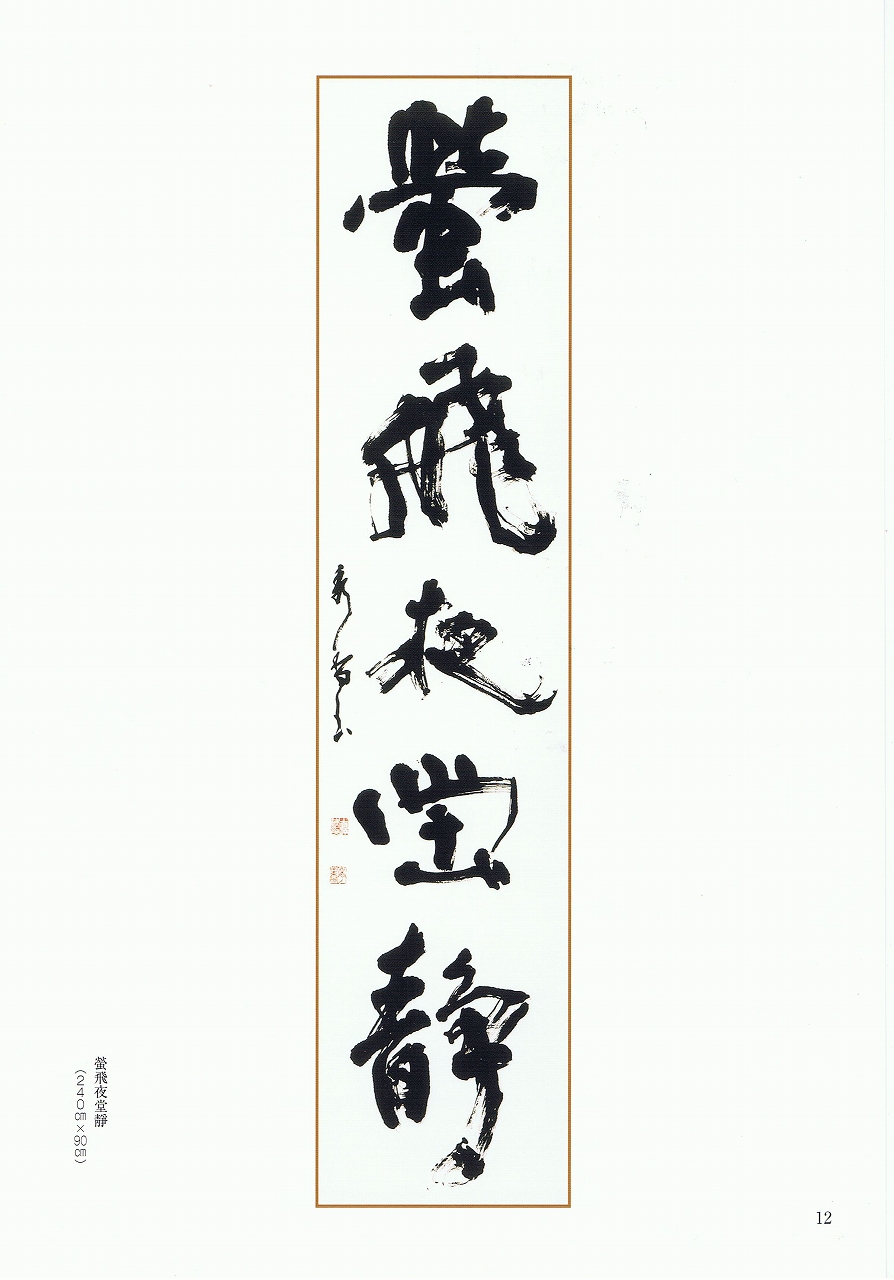 螢飛夜堂靜
螢飛夜堂靜
(240㎝×90㎝)
12